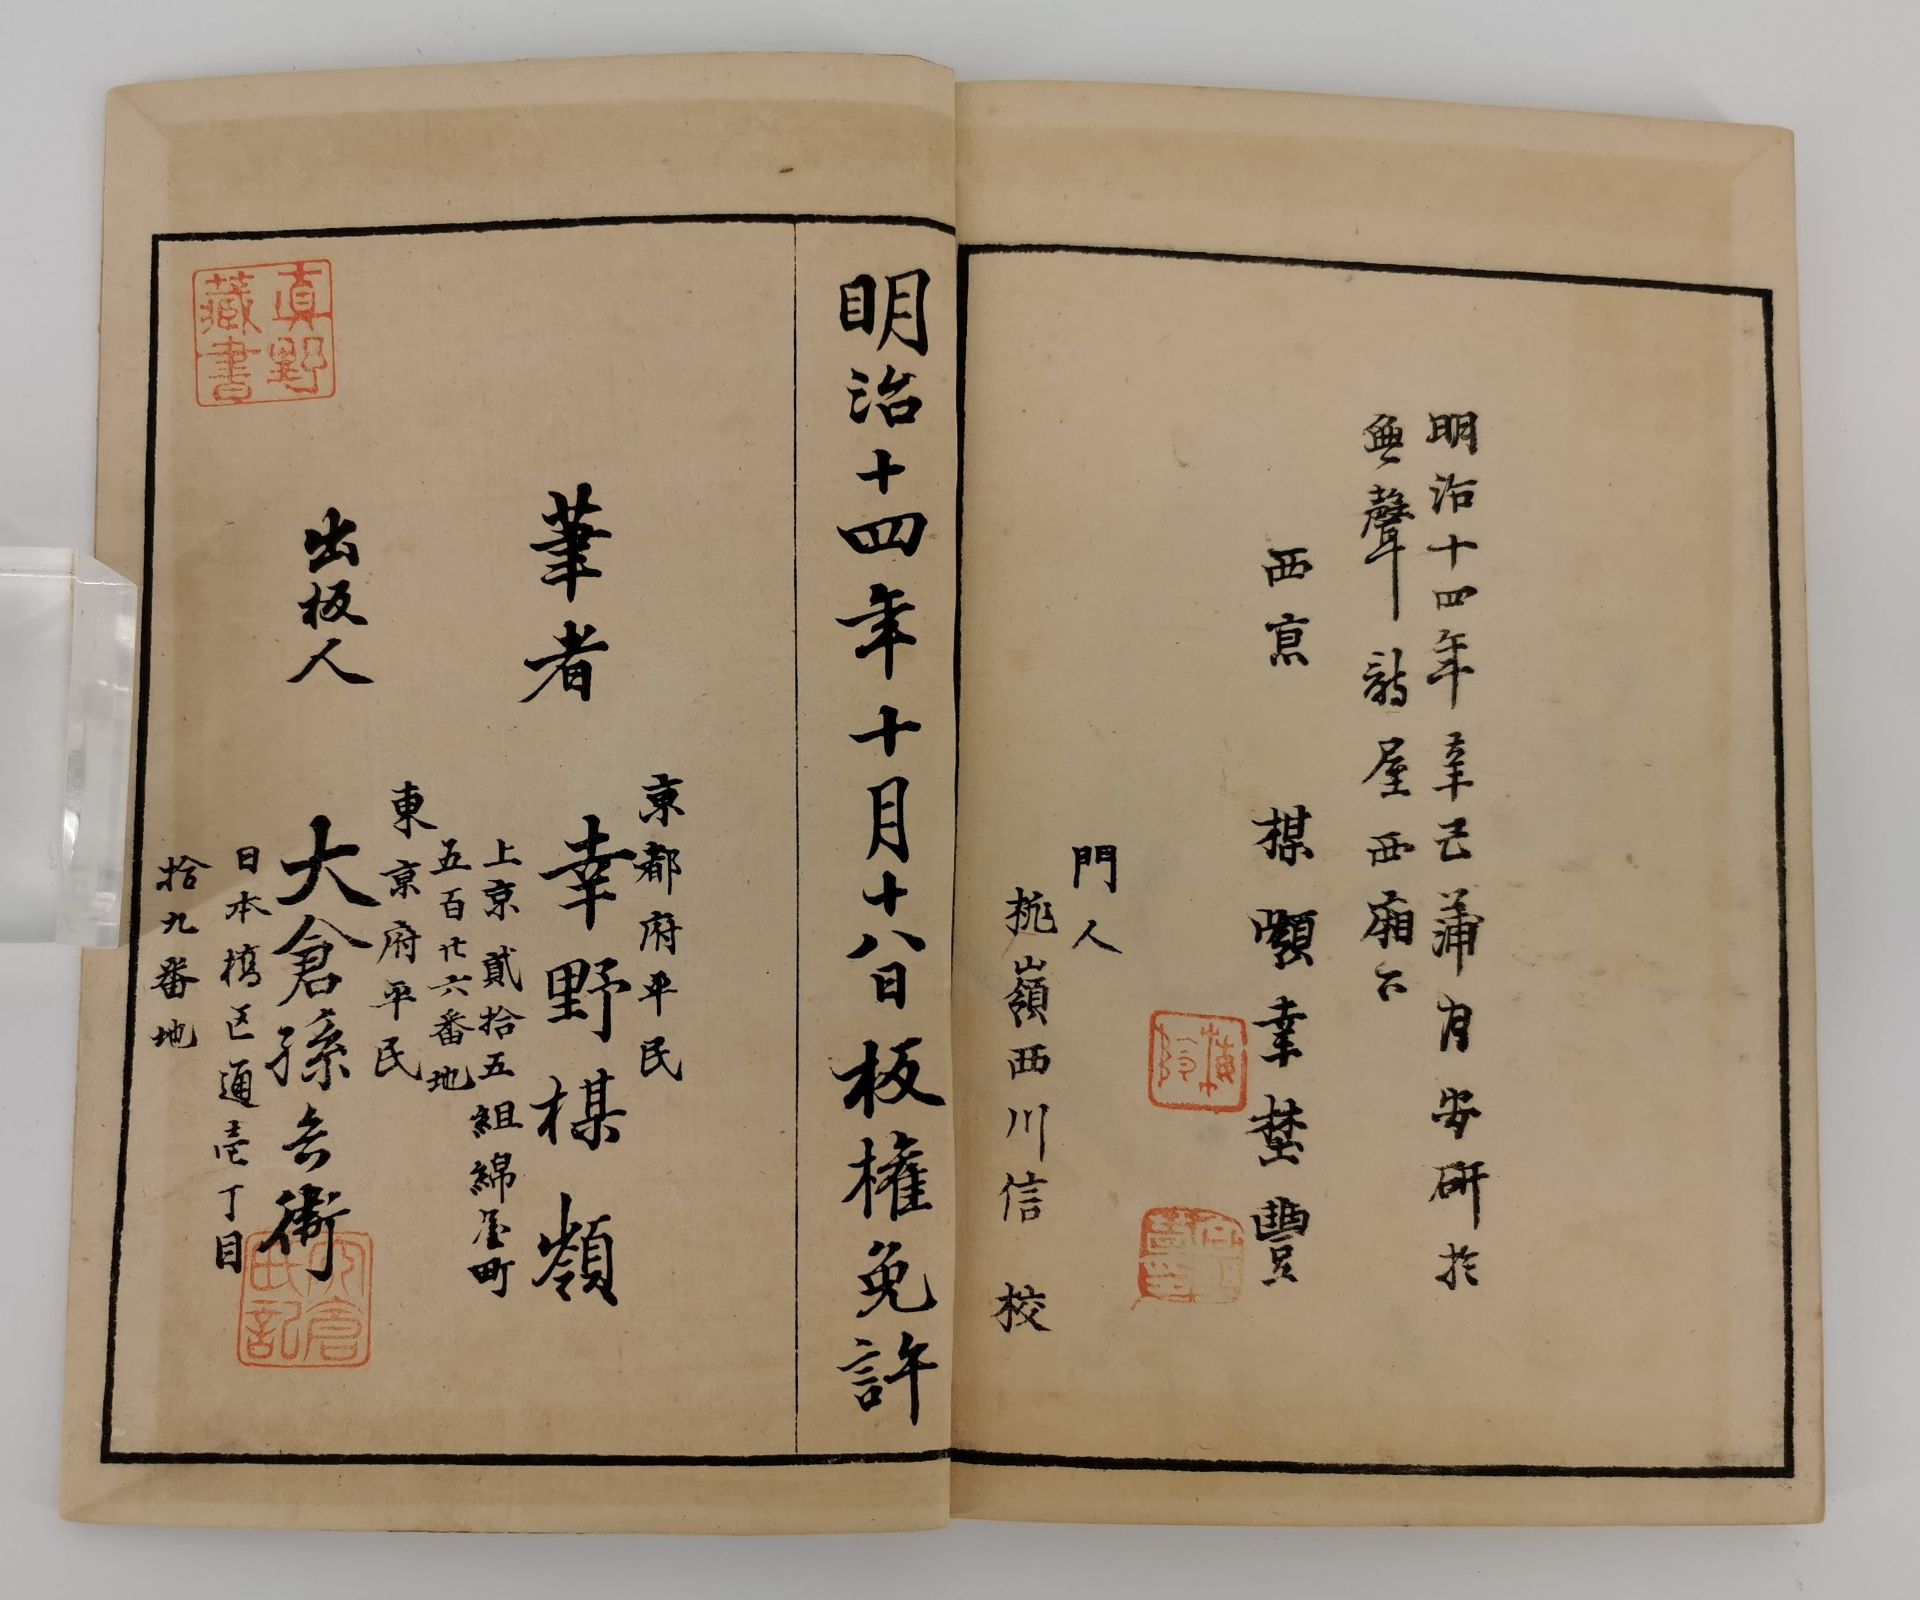 明治十四年辛巳蒲月安研於
無聲詩屋西廂下
西京 楳嶺幸埜豐
門人
桃嶺西川信 校
明治十四年十月十八日板權免許
京都府平民
筆者 幸野楳嶺
上京貳拾五組綿屋町
五百廿六番地
東京府平民
出板人 大倉孫兵衛
日本橋区通壱丁目
拾九番地
真野
藏書
大倉
氏記